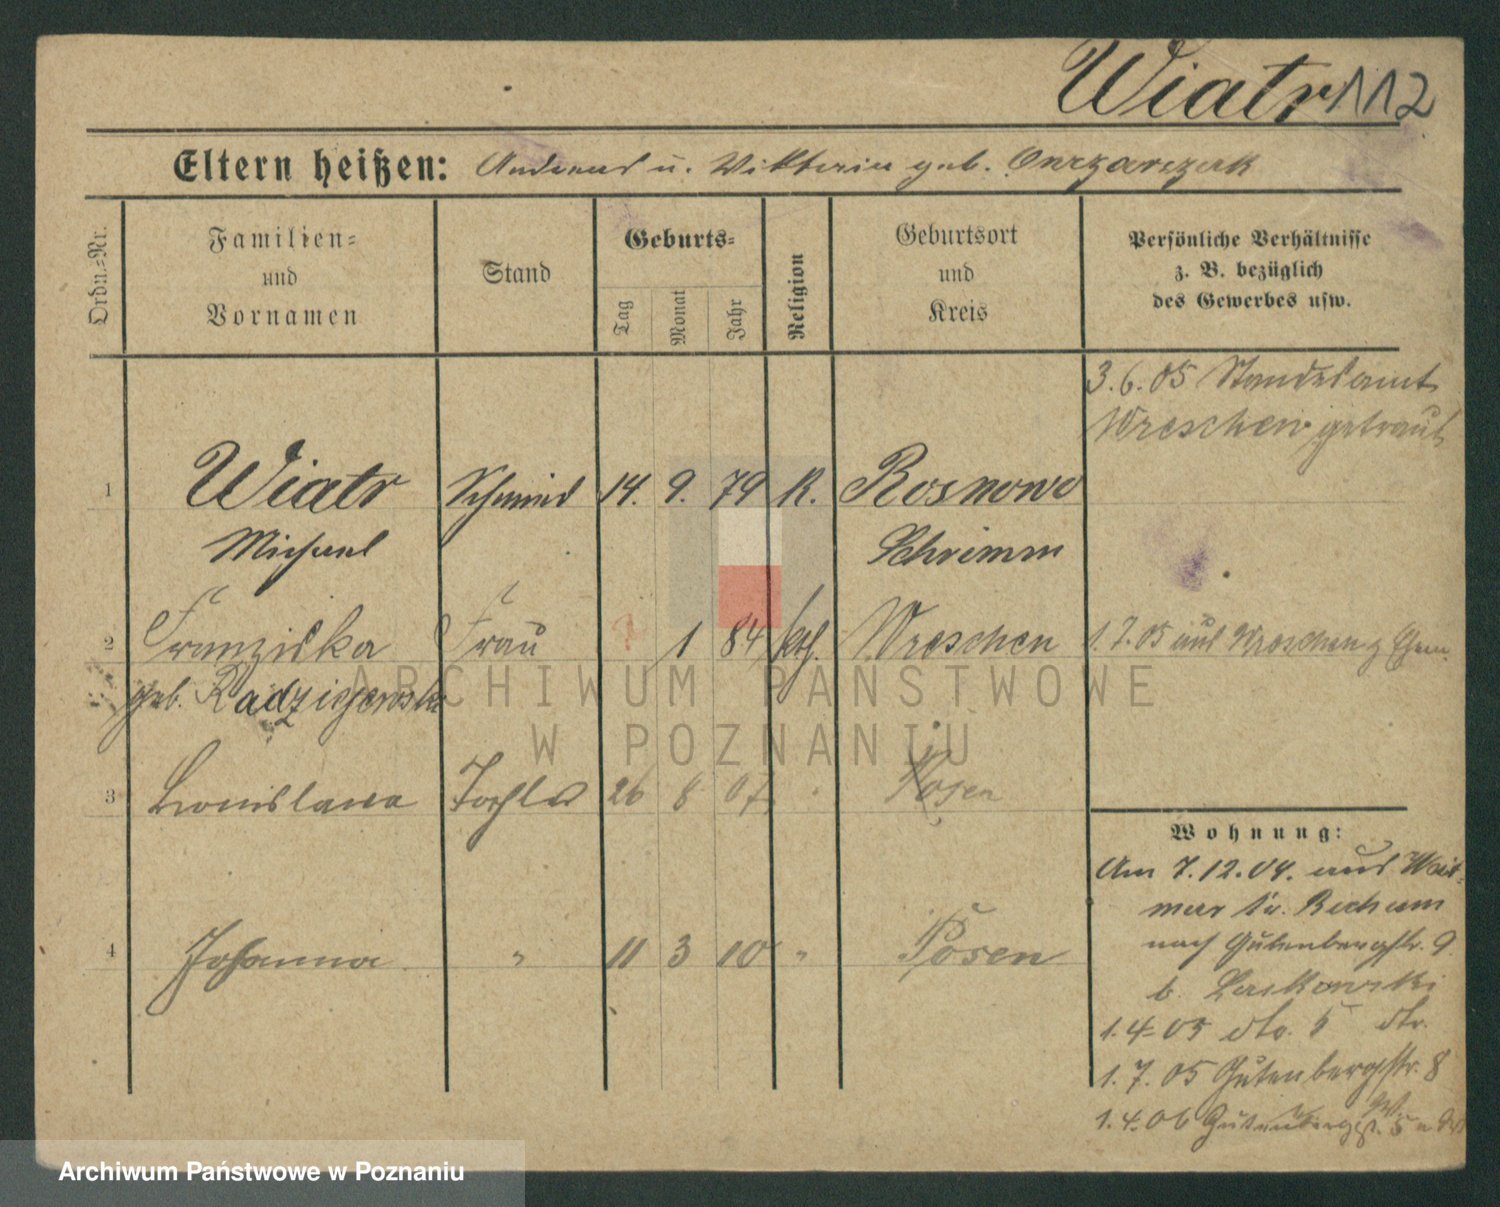 Wiatr 112
Eltern heißen: Andreas u. Viktoria geb.
Ordn.-Nr.
Familien-
und
Vornamen
Stand
Geburts-
Tag
Monat
Jahr
Religion
Geburtsort
und
Kreis
Persönliche Verhältnisse
z. B. bezüglich
des Gewerbes usw.
3.6.05 Standesamt
Wreschen getraut
1 Wiatr Schmied 14. 9. 79 K. Rosnowo
Michael Schrimm
2 Franziska Frau 1 84 kth. Wreschen 1.7.05 aus Wreschen z Ehem.
geb. Radziejewska
3 Bronislawa Tochter 26 8 07 Posen
4 Johanna " 11 3 10 " Posen
Wohnung:
Am 7.12.04. aus Wei-
mar
nach Gutenbergstr. 9
b. Laskowski
1.4.05 dto. 5 dto.
1.7.05 Gutenbergstr. 8
1.4.06 Gutenbergst. 5
ARCHIWUM PAŃSTWOWE
W POZNANIU
Archiwum Państwowe w Poznaniu